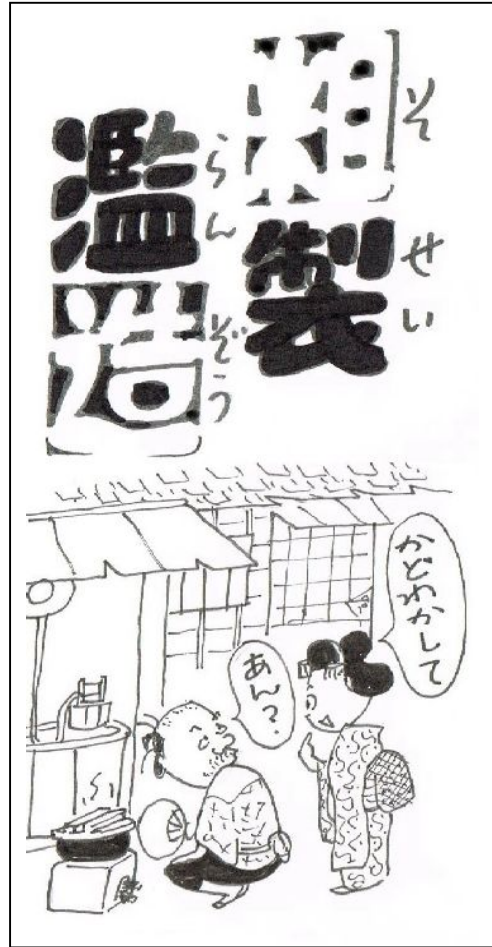 粗製
そせい
濫造
らんぞう
かどわかして
あん?